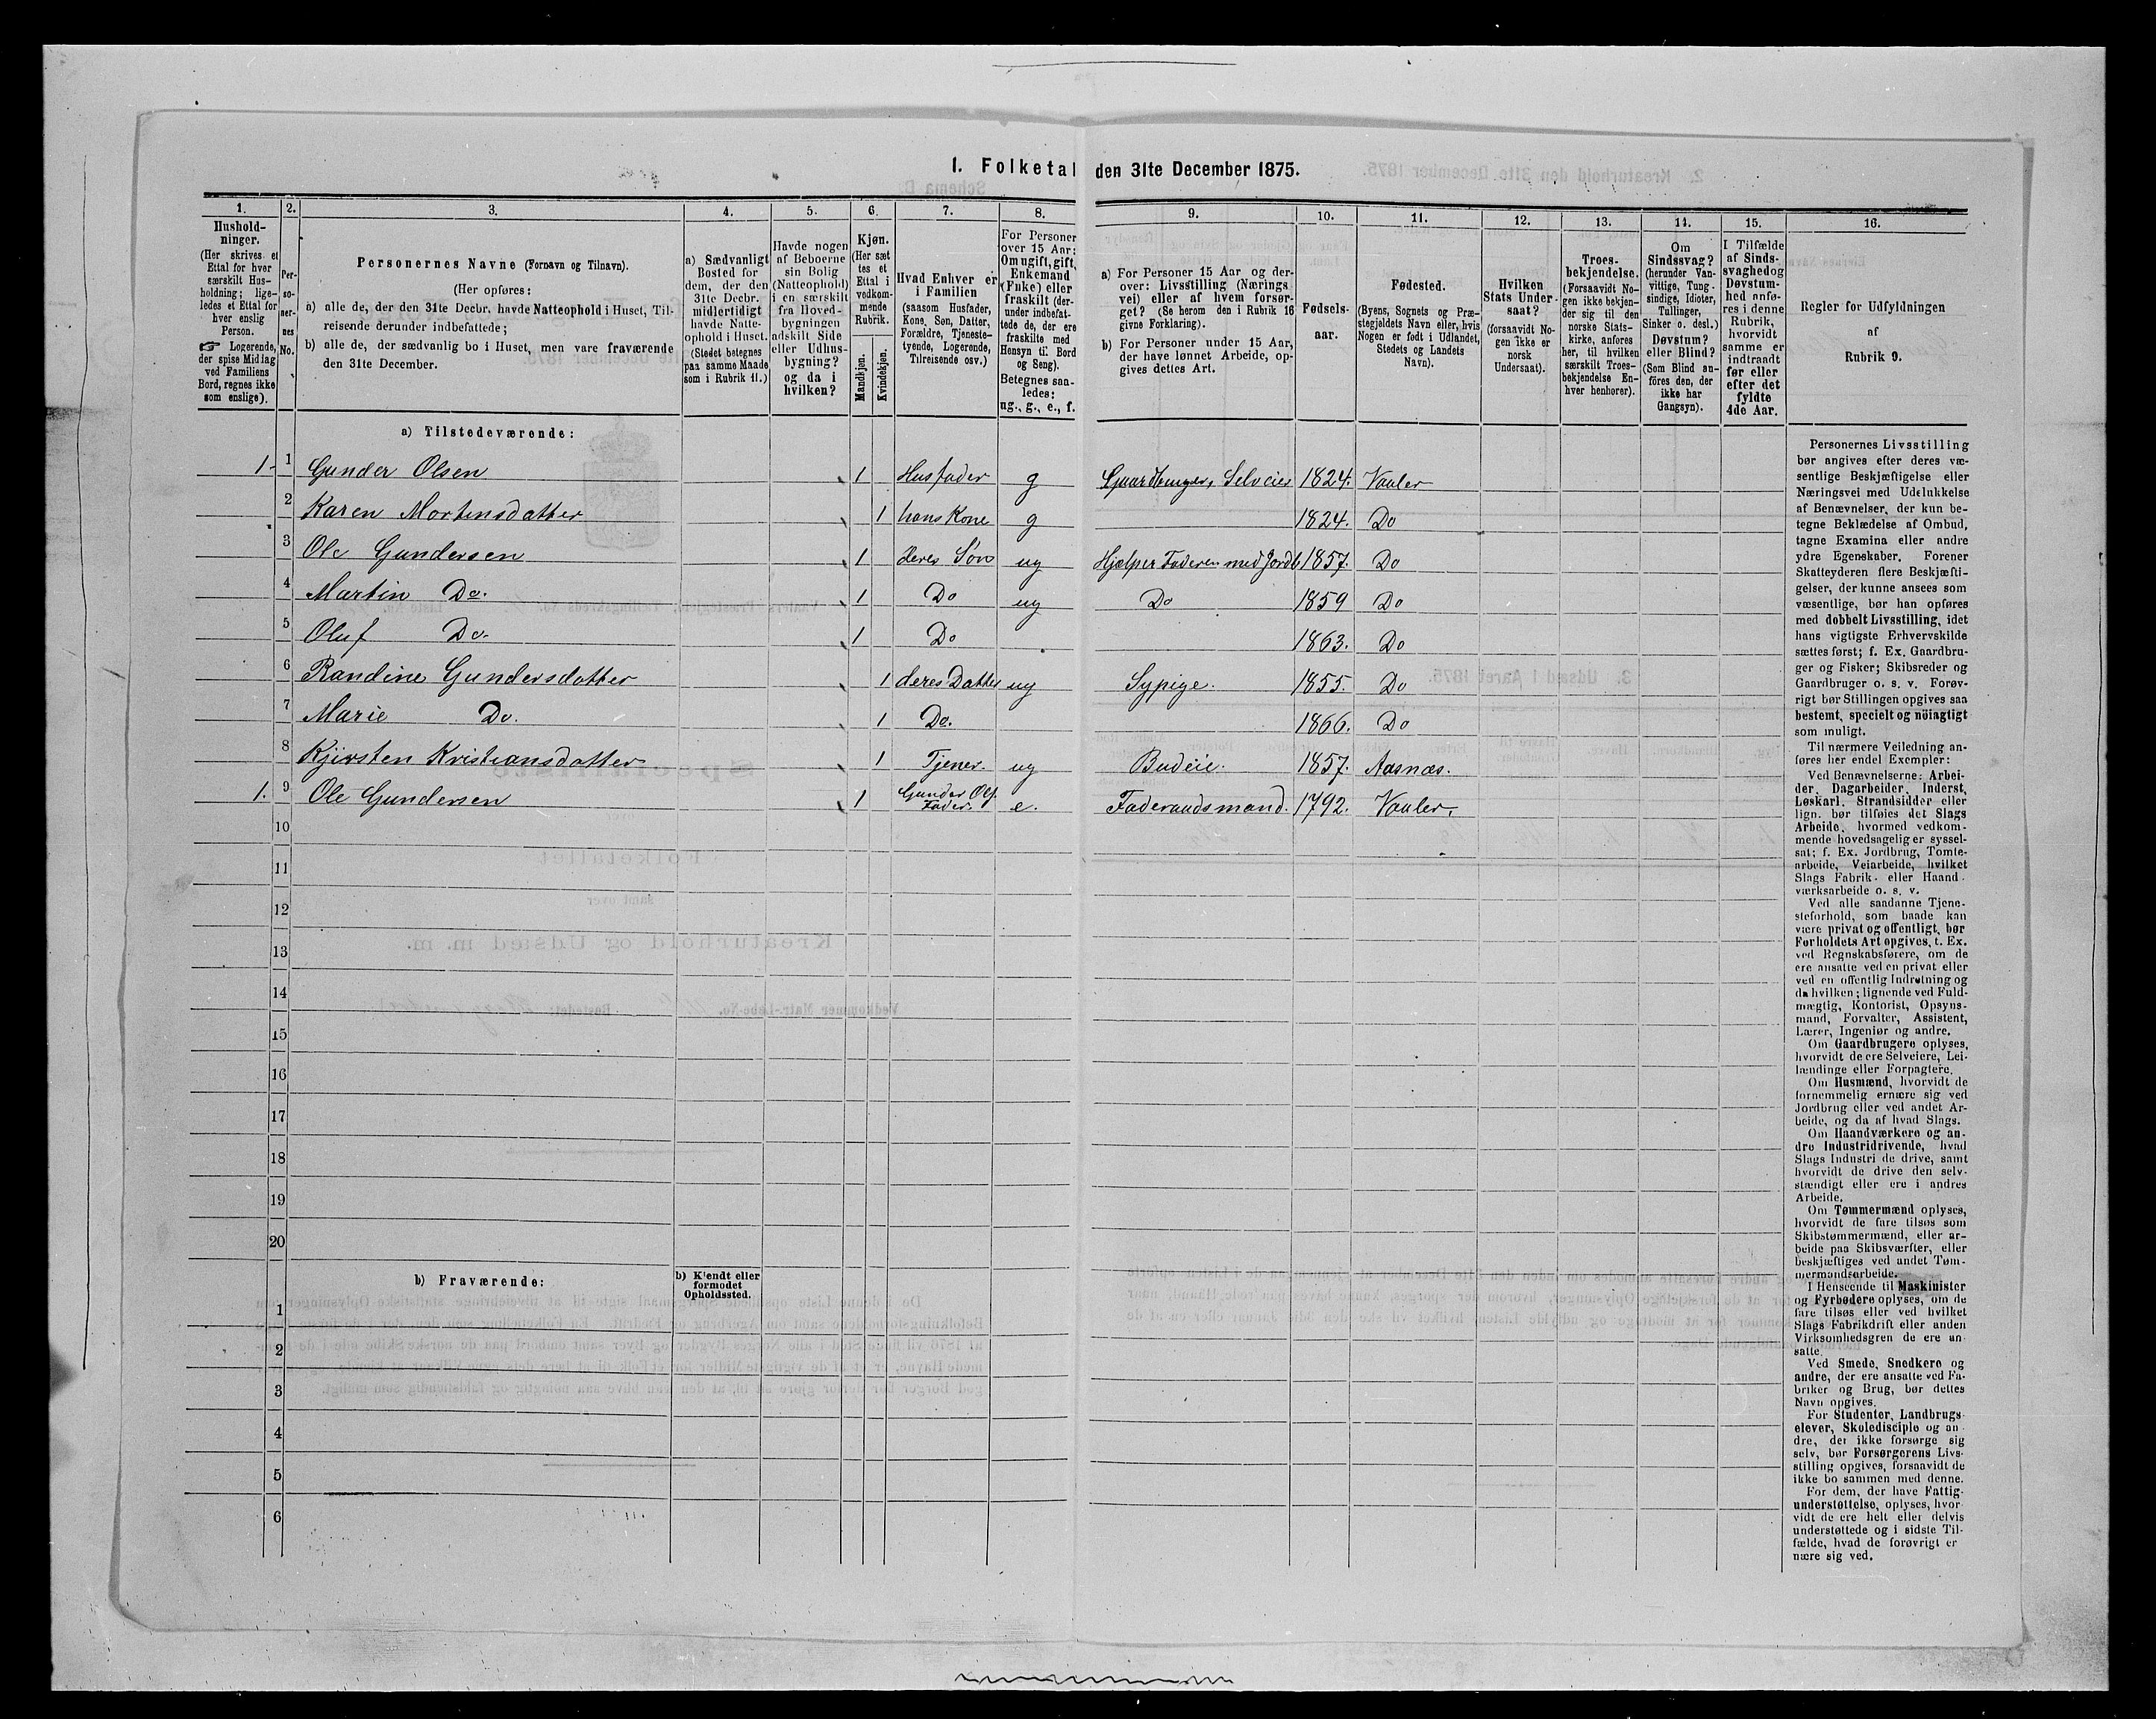 1. Folketal den 31te December 1875.
1. 2. 3. 4. 5. 6. 7. 8. 9. 10. 11. 12. 13. 14. 15. 16.
Hushold-
ninger.
(Her skrives et
Ettal for hver
særskilt Hus-
holdning; lige-
ledes et Ettal for
hver enslig
Person.
☞ Logerende,
der spise Middag
ved Familiens
Bord, regnes ikke
som enslige).
Per-
so-
ner-
nes
No.
Personernes Navne (Fornavn og Tilnavn).
(Her opføres:
a) alle de, der den 31te Decbr. havde Natteophold i Huset, Til-
reisende derunder indbefattede;
b) alle de, der sædvanlig bo i Huset, men vare fraværende
den 31te December.
a) Sædvanligt
Bosted for
dem, der den
31te Decbr.
midlertidigt
havde Natte-
ophold i Huset.
(Stedet betegnes
paa samme Maade
som i Rubrik 11.)
Havde nogen
af Beboerne
sin Bolig
(Natteophold)
i en særskilt
fra Hoved-
bygningen
adskilt Side
eller Udhus-
bygning?
og da i
hvilken?
Kjøn.
(Her sæt
tes et
Ettal i
vedkom-
mende
Rubrik.
Mandkjøn.
Kvindekjøn.
Hvad Enhver er
i Familien
(saasom Husfader,
Kone, Søn, Datter,
Forældre, Tjeneste-
tyende, Logerende,
Tilreisende osv.)
For Personer
over 15 Aar:
Om ugift, gift,
Enkemand
(Enke) eller
fraskilt (der-
under indbefat-
tede de, der ere
fraskilte med
Hensyn til Bord
og Seng).
Betegnes saa-
ledes:
ug., g., e., f.
a) For Personer 15 Aar og der-
over: Livsstilling (Nærings
vei) eller af hvem forsør-
get? (Se herom den i Rubrik 16
givne Forklaring).
b) For Personer under 15 Aar,
der have lønnet Arbeide, op-
gives dettes Art.
Fødsels-
aar.
Fødested.
(Byens, Sognets og Præ-
stegjeldets Navn eller, hvis
Nogen er født i Udlandet,
Stedets og Landets
Navn).
Hvilken
Stats Under-
saat?
(forsaavidt No-
gen ikke er
norsk
Undersaat).
Troes-
bekjendelse.
(Forsaavidt No-
gen ikke bekjen-
der sig til den
norske Stats-
kirke, anføres
her, til hvilken
særskilt Troes-
bekjendelse En-
hver henhører).
Om
Sindssvag?
(herunder Van-
vittige, Tung-
sindige, Idioter,
Tullinger,
Sinker o. desl.)
Døvstum?
eller Blind?
(Som Blind an-
føres den, der
ikke har
Gangsyn).
I Tilfælde
af Sinds-
svaghed og
Døvstum-
hed anfø-
res i denne
Rubrik,
hvorvidt
samme er
indtraadt
før eller
efter det
fyldte
4de Aar.
Regler for Udfyldningen
af
Rubrik 9.
a) Tilstedeværende:
1. 1 Gunder Olsen 1 Husfader g Gaardbruger, Selveier 1824. Vaaler
2 Karen Mortensdatter 1 hans Kone g 1824. Do
3 Ole Gundersen 1 deres Søn ug Hjælper Faderen med Jordb 1857. Do
4 Martin Do. 1 Do ug Do 1859 Do
5 Oluf Do. 1 Do 1863. Do
6 Randine Gundersdatter 1 deres Datter ug Sypige. 1855. Do
7 Marie Do. 1 Do. 1866. Do
8 Kjirsten Kristiansdatter 1 Tjener. ug Budeie. 1857. Aasnæs.
1. 9 Ole Gundersen 1 Gunder Ols. Fader. e. Føderaadsmand. 1792. Vaaler.
10
11
12
13
14
15
16
17
18
19
20
b) Fraværende:
b) Kjendt eller
formodet
Opholdssted.
1
2
3
4
5
6
Personernes Livsstilling
bør angives efter deres væ-
sentlige Beskjæftigelse eller
Næringsvei med Udelukkelse
af Benævnelser, der kun be-
tegne Beklædelse af Ombud,
tagne Examina eller andre
ydre Egenskaber. Forener
Skatteyderen flere Beskjæfti-
gelser, der kunne ansees som
væsentlige, bør han opføres
med dobbelt Livsstilling, idet
hans vigtigste Erhvervskilde
sættes først; f. Ex. Gaardbru-
ger og Fisker; Skibsreder og
Gaardbruger o. s. v. Forøv-
rigt bør Stillingen opgives saa
bestemt, specielt og nöiagtigt
som muligt.
Til nærmere Veiledning an-
føres her endel Exempler:
Ved Benævnelserne: Arbei-
der, Dagarbeider, Inderst,
Løskarl, Strandsidder eller
lign. bør tilføies det Slags
Arbeide, hvormed vedkom-
mende hovedsagelig er syssel-
sat; f. Ex. Jordbrug, Tomte-
arbeide, Veiarbeide, hvilket
Slags Fabrik- eller Haand-
værksarbeide o. s. v.
Ved alle saadanne Tjene-
steforhold, som baade kan
være privat og offentligt, bør
Forholdets Art opgives, t. Ex.
ved Regnskabsførere, om de
ere ansatte ved en privat eller
ved en offentlig Indretning og
da hvilken; lignende ved Fuld-
mægtig, Kontorist, Opsyns-
mand, Forvalter, Assistent,
Lærer, Ingeniør og andre.
Om Gaardbrugere oplyses,
hvorvidt de ere Selveiere, Lei-
lændinge eller Forpagtere.
Om Husmænd, hvorvidt de
fornemmelig ernære sig ved
Jordbrug eller ved andet Ar-
beide, og da af hvad Slags.
Om Haandværkere og an-
dre Industridrivende, hvad
Slags Industri de drive, samt
hvorvidt de drive den selv-
stændigt eller ere i andres
Arbeide.
Om Tømmermænd oplyses,
hvorvidt de fare tilsøs som
Skibstømmermænd, eller ar-
beide paa Skibsværfter, eller
beskjæftiges ved andet Tøm-
mermandsarbeide.
I Henseende til Maskinister
og Fyrbødere oplyses, om de
fare tilsøs eller ved hvilket
Slags Fabrikdrift eller anden
Virksomhedsgren de ere an-
satte.
Ved Smede, Snedkere og
andre, der ere ansatte ved Fa-
briker og Brug, bør dettes
Navn opgives.
For Studenter, Landbrugs-
elever, Skoledisciple og an-
dre, der ikke forsørge sig
selv, bør Forsørgerens Livs-
stilling opgives, forsaavidt de
ikke bo sammen med denne.
For dem, der have Fattig-
understøttelse, oplyses, hvor-
vidt de ere helt eller delvis
understøttede og i sidste Til-
fælde, hvad de forøvrigt er
nære sig ved.